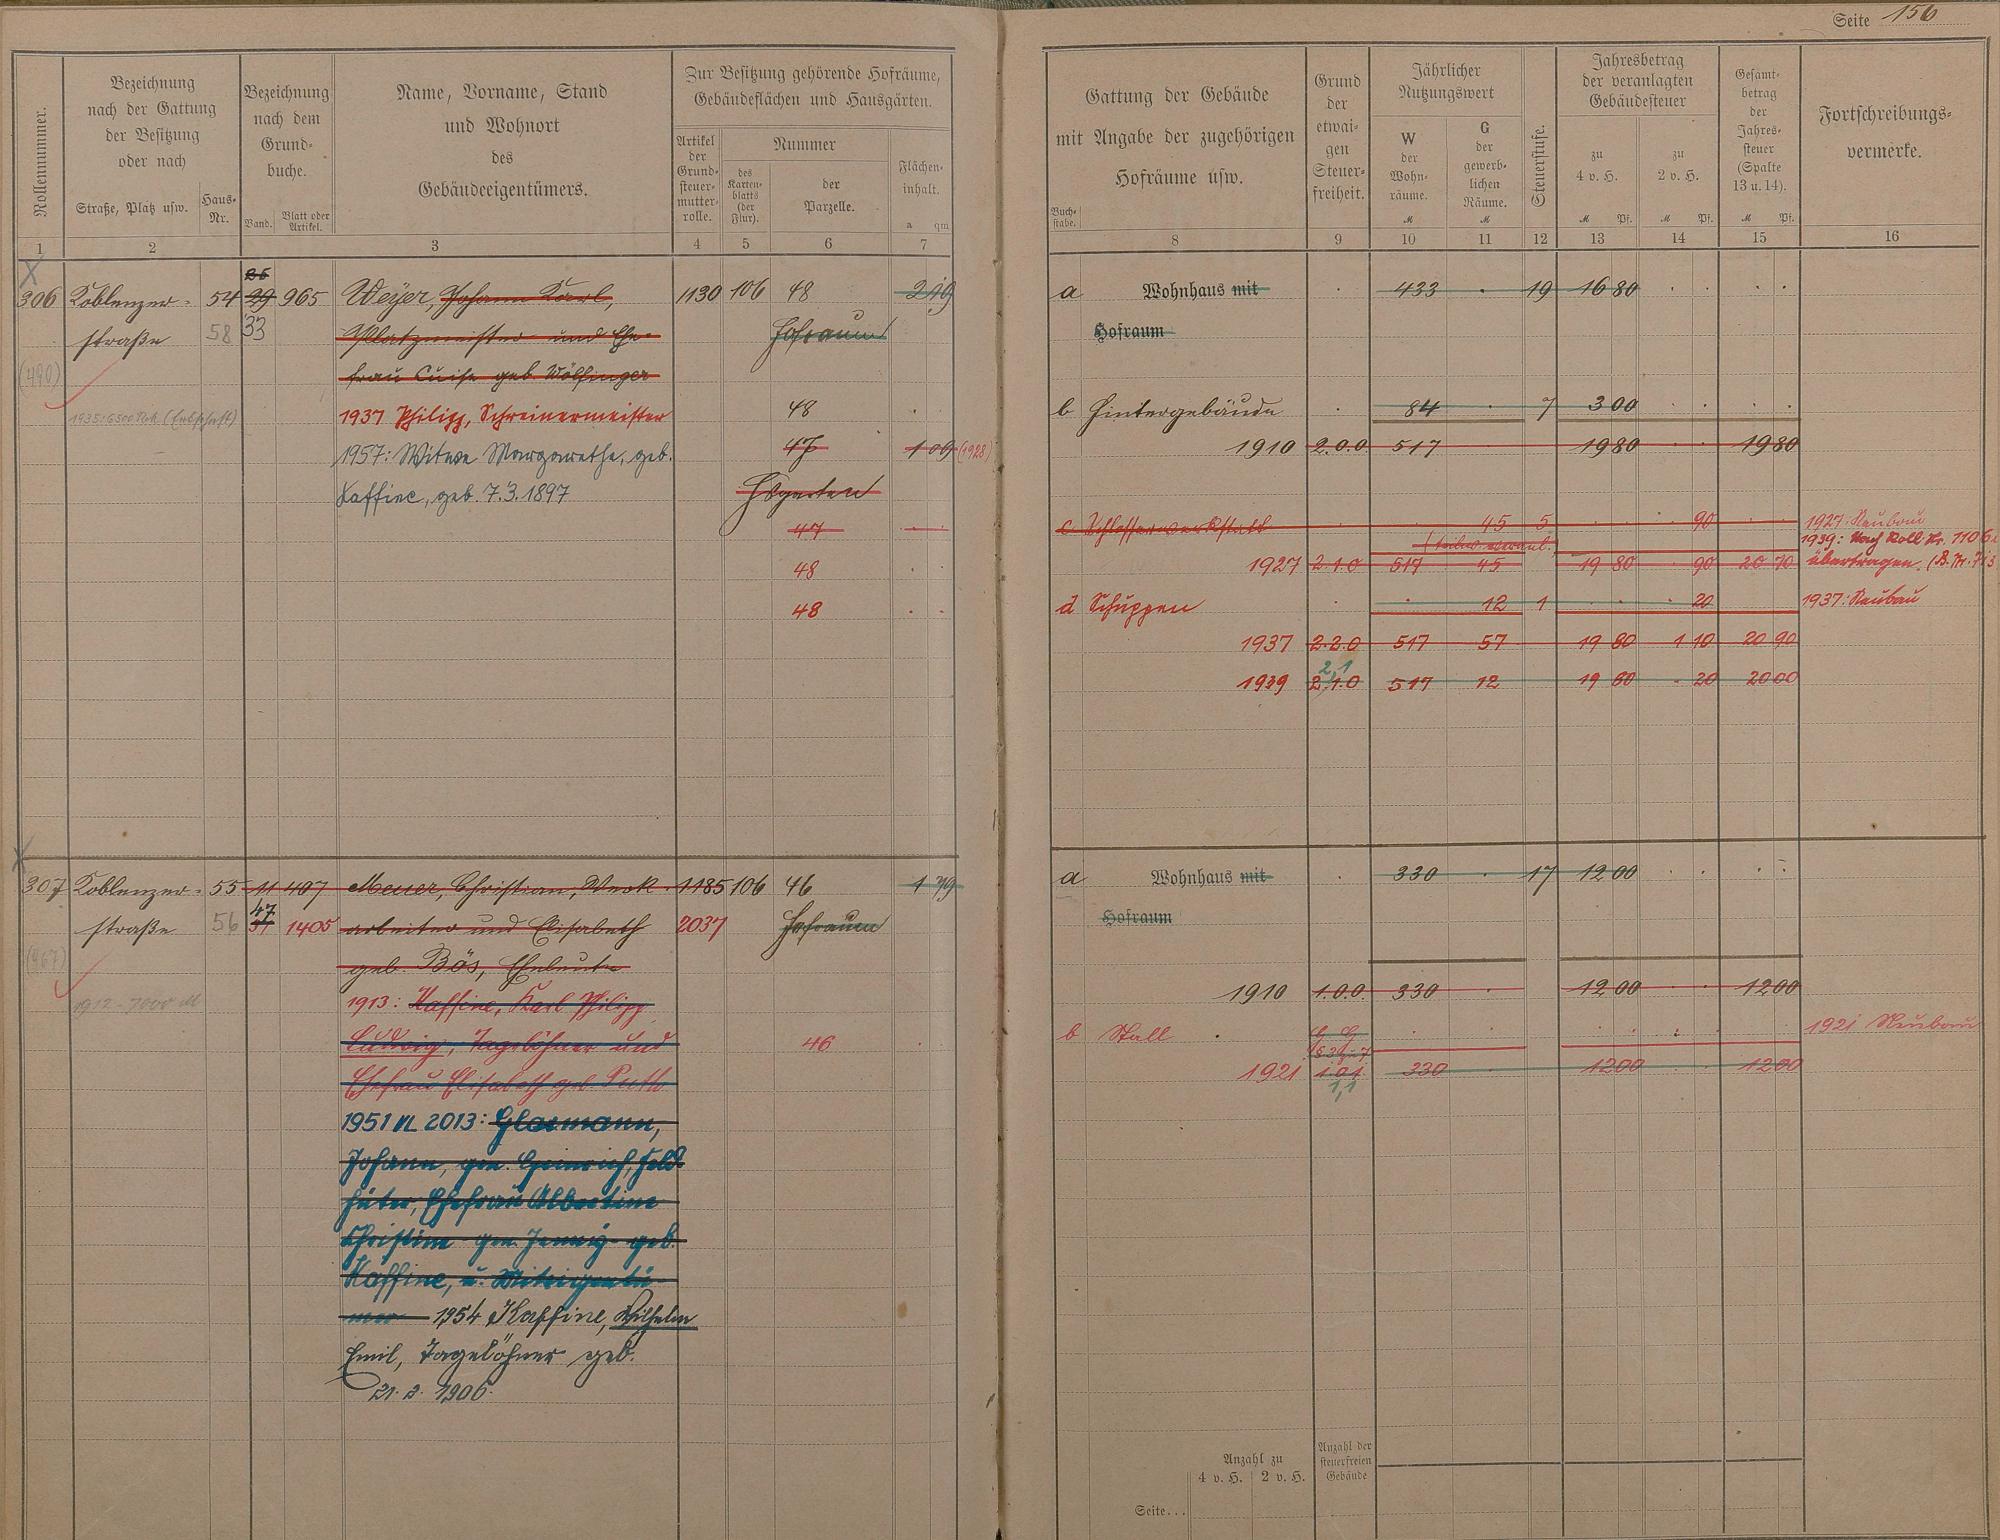 Seite 156
Rollennummer.
Bezeichnung
nach der Gattung
der Besitzung
oder nach
Straße, Platz usw.
Haus-
Nr.
Bezeichnung
nach dem
Grund-
buche.
Band.
Blatt oder
Artikel.
Name, Vorname, Stand
und Wohnort
des
Gebäudeeigentümers.
Zur Besitzung gehörende Hofräume,
Gebäudeflächen und Hausgärten.
Artikel
der
Grund-
steuer-
mutter-
rolle.
Nummer
des
Karten-
blatts
(der
Flur).
der
Parzelle.
Flächen-
inhalt.
a qm
1 2 3 4 5 6 7
306 Koblenzer- 54 29 965 Weyer, Johann Karl, 1130 106 48 2 19
straße 58 33 Platzmeister und Ehe- Hofraum
(490) frau Luise geb. Wölfinger
1937 Philipp, Schreinermeister 48
1957: Witwe Margarethe, geb. 47 1 09 (1928)
Kaffine, geb. 7.3.1897 Hsgarten
47
48
48
307 Koblenzer- 55 11 407 Meuer, Christian, Werk- 1185 106 46 1 79
straße 56 47 1405 arbeiter und Elisabeth 2037 Hofraum
(467) geb. Bös, Eheleute
1912 - 7000 M 1913: Kaffine, Karl Philipp
Ludwig, Tagelöhner und 46
Ehefrau Elisabeth geb.
1951 VL 2013: Glasmann,
Johann, gen. Heinrich, Feld-
hüter, Ehefrau Albertine
Christine gen. Jenny geb.
Kaffine, u. Miteigentü-
mer 1954 Kaffine, Wilhelm
Emil, Tagelöhner geb.
21. 2. 1906.
Gattung der Gebäude
mit Angabe der zugehörigen
Hofräume usw.
Buch-
stabe.
Grund
der
etwai-
gen
Steuer-
freiheit.
Jährlicher
Nutzungswert
W
der
Wohn-
räume.
M
G
der
gewerb-
lichen
Räume.
M
Steuerstufe.
Jahresbetrag
der veranlagten
Gebäudesteuer
zu
4 v. H.
M Pf.
zu
2 v. H.
M Pf.
Gesamt-
betrag
der
Jahres-
steuer
(Spalte
13 u. 14).
M Pf.
Fortschreibungs-
vermerke.
8 9 10 11 12 13 14 15 16
a Wohnhaus mit 433 19 16 80
Hofraum
b Hintergebäude 84 7 3 00
1910 2.0.0 517 19 80 19 80
c Schlosserwerkstatt 45 5 90 1927: Neubau
1939: Nach Roll Nr. 1106
1927 2.1.0 517 45 19 80 90 20 70 übertragen.
d Schuppen 12 1 20 1937: Neubau
1937 2.2.0 517 57 19 80 1 10 20 90
2,1
1939 2.1.0 517 12 19 80 20 20 00
a Wohnhaus mit 330 17 12 00
Hofraum
1910 1.0.0. 330 12 00 12 00
b Stall 1921 Neubau
1921 1.0.1 330 12 00 12 00
1,1
Anzahl zu
4 v. H. 2 v. H.
Anzahl der
steuerfreien
Gebäude
Seite...